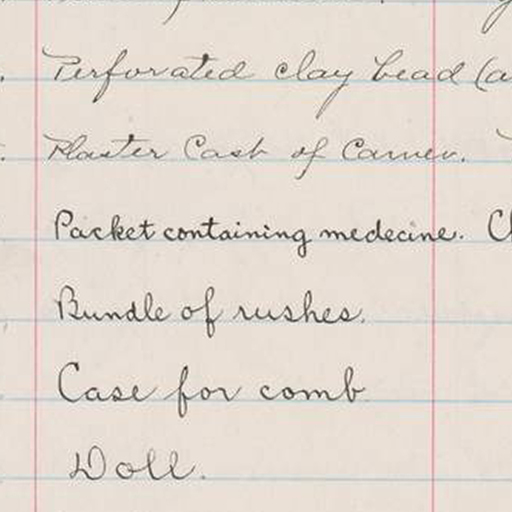 Perforated clay bead (a
Plaster Cast of Carver.
Packet containing medecine. Ch
Bundle of rushes.
Case for comb
Doll.